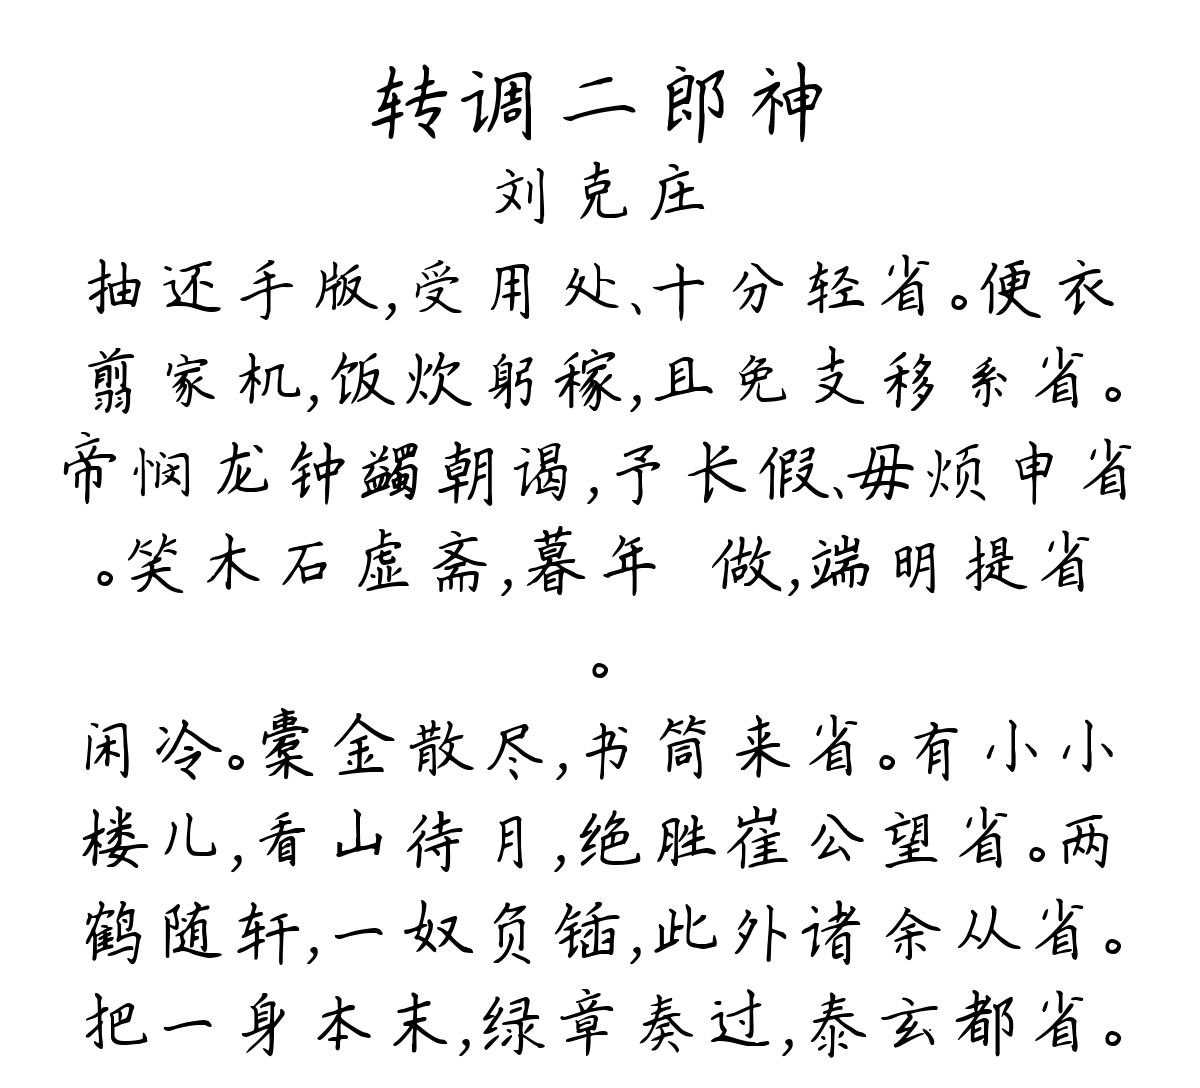 转调二郎神
刘克庄
抽还手版,受用处、十分轻省。便衣
翦家机,饭炊躬稼,且免支移系省。
帝悯龙钟蠲朝谒,予长假、毋烦申省
。笑木石虚斋,暮年 做,端明提省
。
闲冷。橐金散尽,书筒来省。有小小
楼儿,看山待月,绝胜崔公望省。两
鹤随轩,一奴负锸,此外诸余从省。
把一身本末,绿章奏过,泰玄都省。